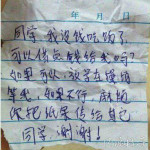 年 月 日
同学,我没钱吃饭了
可以借点钱给我吗?
如果可以,放学在
等我,如果不行,麻烦
你把纸条传给其它
同学,谢谢!